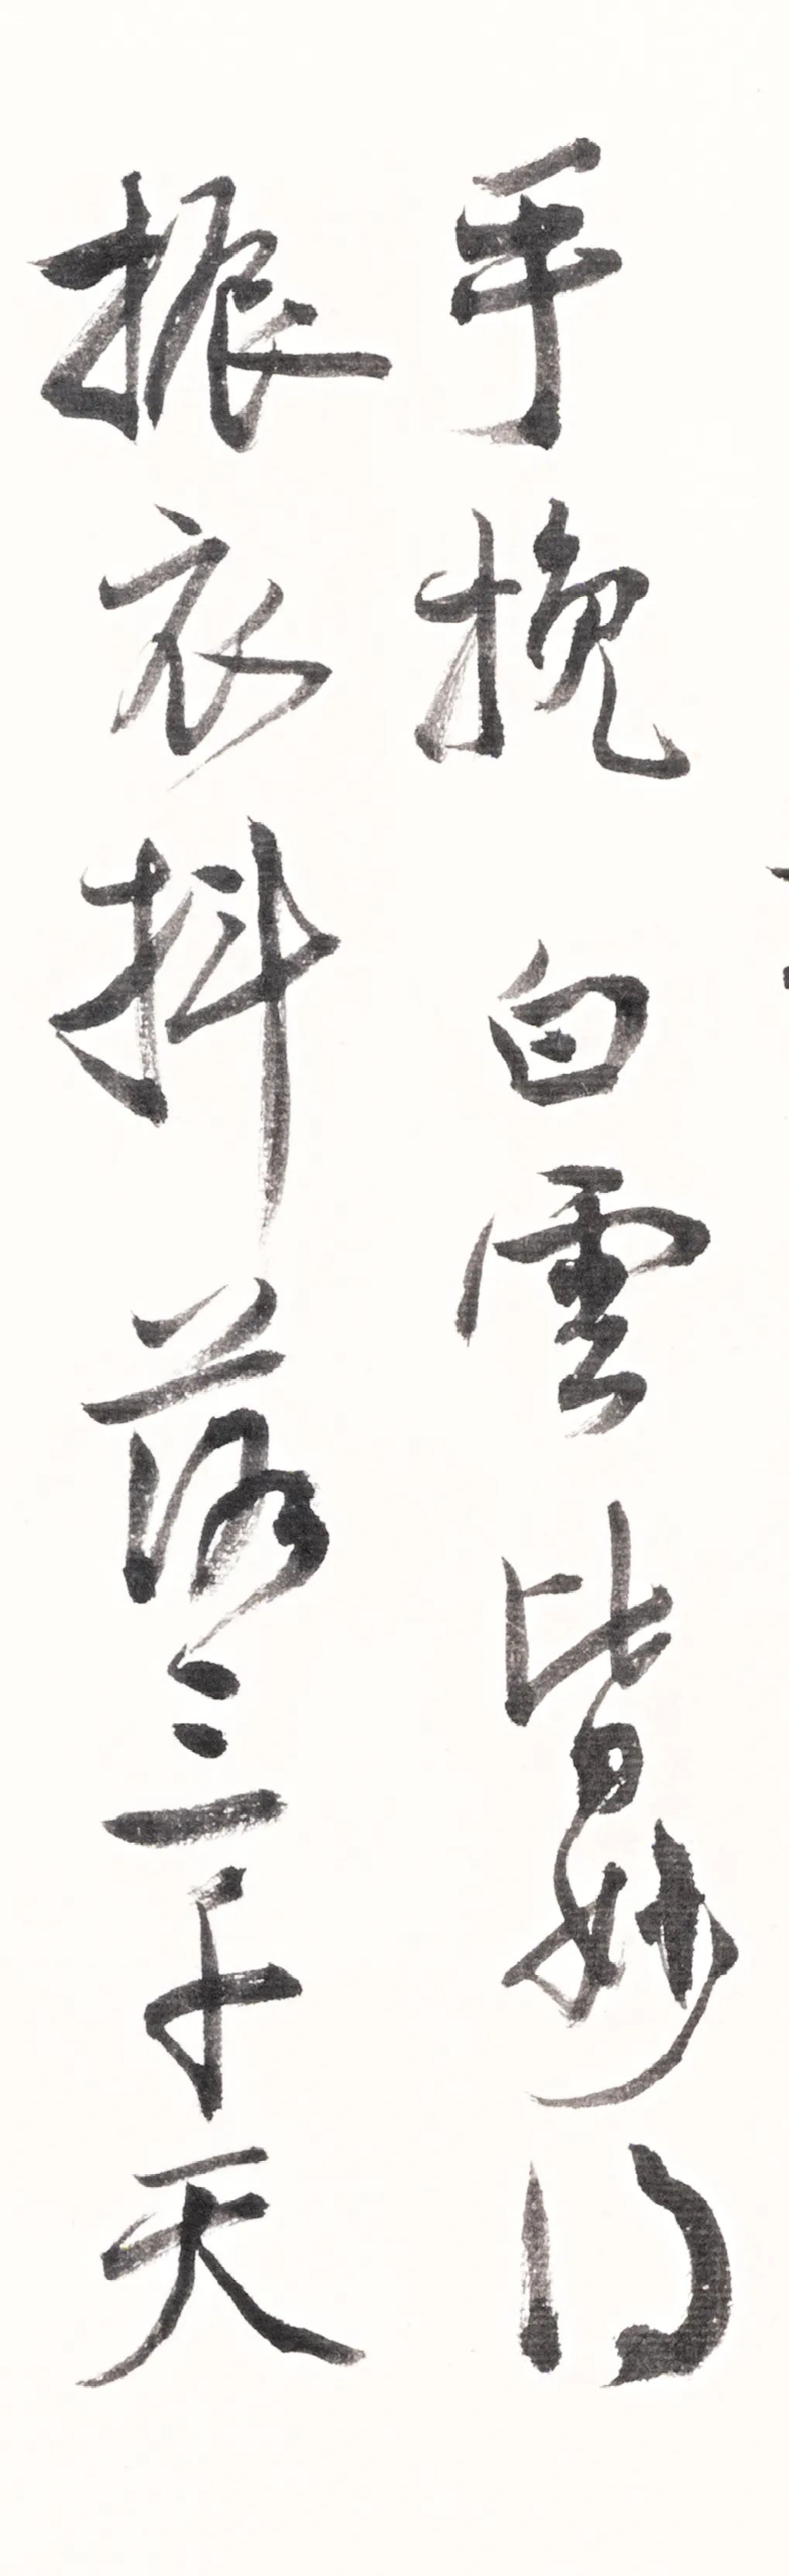 手挽白雲皆妙得
振衣抖落三千天